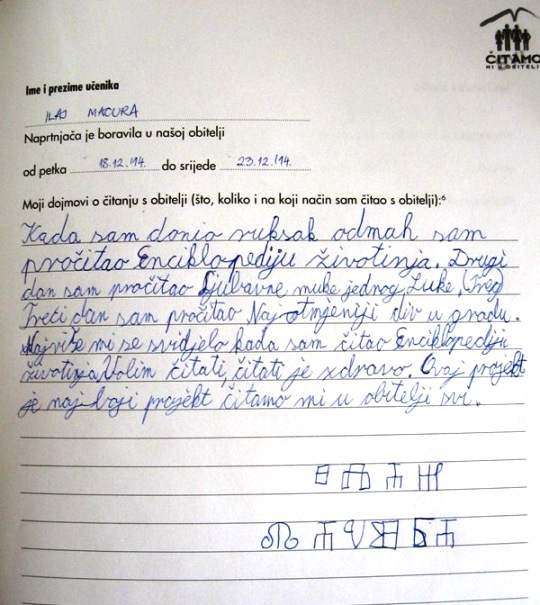 ČITAMO
MI U OBITELJI
Ime i prezime učenika
ILAJ MACURA
Naprtnjača je boravila u našoj obitelji
od petka 18.12.'14. do srijede 23.12.'14.
Moji dojmovi o čitanju s obitelji (što, koliko i na koji način sam čitao s obitelji):⁶
Kada sam donio ruksak odmah sam
pročitao Enciklopediju životinja. Drugi
dan sam pročitao Ljubavne muke jednog Luke. (Treg)
Treći dan sam pročitao Naj otmjeniji div u gradu.
Najviše mi se svidjelo kada sam čitao Enciklopediji
životinja. Volim čitati, čitati je zdravo. Ovaj projekt
je naj bolji projekt čitamo mi u obitelji svi.